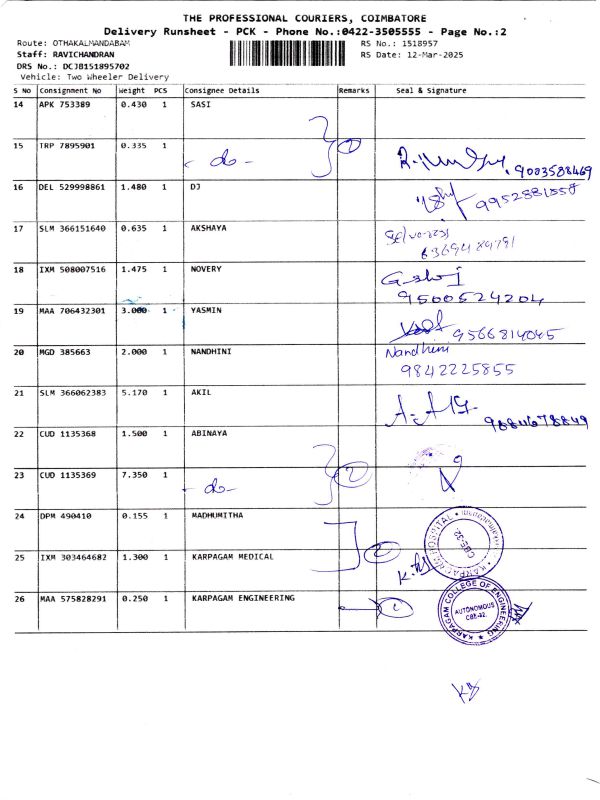 THE PROFESSIONAL COURIERS, COIMBATORE
Delivery Runsheet - PCK - Phone No.:0422-3505555 - Page No.:2
Route: OTHAKALMANDABAM RS No.: 1518957
Staff: RAVICHANDRAN RS Date: 12-Mar-2025
DRS No.: DCJB151895702
Vehicle: Two Wheeler Delivery
S No Consignment No Weight PCS Consignee Details Remarks Seal & Signature
14 APK 753389 0.430 1 SASI
15 TRP 7895901 0.335 1 - do - 2 9003588469
16 DEL 529998861 1.480 1 DJ
17 SLM 366151640 0.635 1 AKSHAYA
6369484791
18 IXM 508007516 1.475 1 NOVERY
9500524204
19 MAA 706432301 3.000 1 YASMIN 9566814045
20 MGD 385663 2.000 1 NANDHINI Nandhini
9842225855
21 SLM 366062383 5.170 1 AKIL
9884678849
22 CUD 1135368 1.500 1 ABINAYA
23 CUD 1135369 7.350 1 - do - 2
24 DPM 490410 0.155 1 MADHUMITHA
25 IXM 303464682 1.300 1 KARPAGAM MEDICAL 2
HOSPITAL CBE-32.
26 MAA 575828291 0.250 1 KARPAGAM ENGINEERING 1
KARPAGAM COLLEGE OF ENGINEERING
AUTONOMOUS
CBE-32.